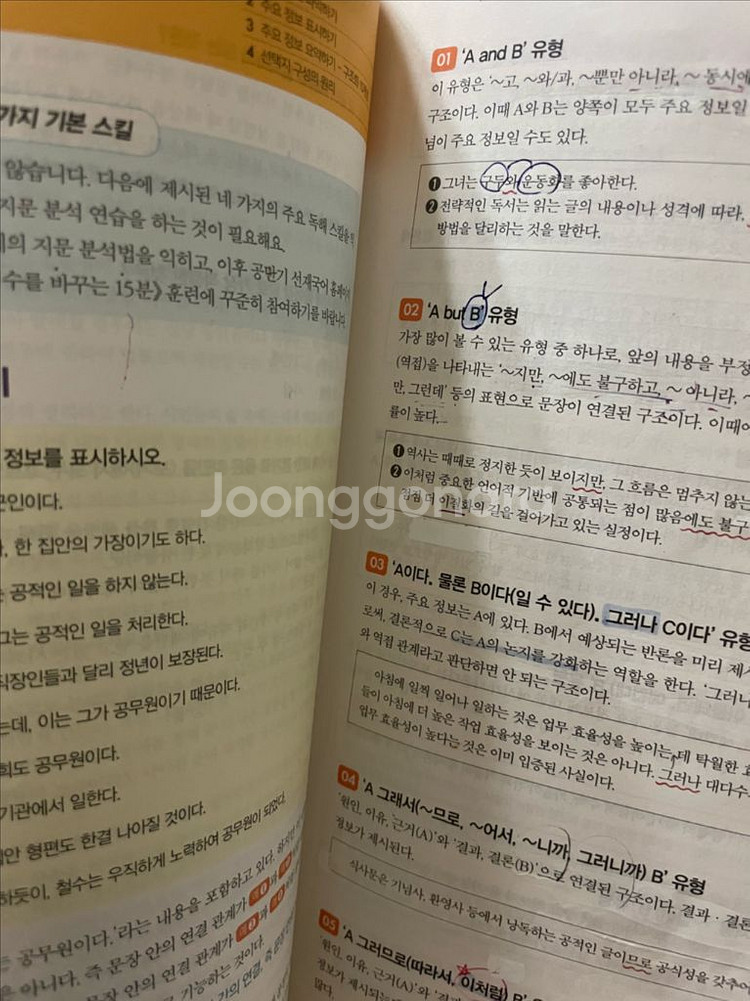 2 주요 정보 표시하기
3 주요 정보 요약하기 - 구조화
4 선택지 구성의 원리
가지 기본 스킬
않습니다. 다음에 제시된 네 가지의 주요 독해 스킬을
지문 분석 연습을 하는 것이 필요해요.
의 지문 분석법을 익히고, 이후 공단기 선재국어 홈페이지
수를 바꾸는 15분》 훈련에 꾸준히 참여하기를 바랍니다.
정보를 표시하시오.
군인이다.
한 집안의 가장이기도 하다.
공적인 일을 하지 않는다.
그는 공적인 일을 처리한다.
직장인들과 달리 정년이 보장된다.
는데, 이는 그가 공무원이기 때문이다.
희도 공무원이다.
기관에서 일한다.
안 형편도 한결 나아질 것이다.
하듯이, 철수는 우직하게 노력하여 공무원이 되었다.
는 공무원이다.'라는 내용을 포함하고 있다.
은 아니다. 즉 문장 안의 연결 관계가
장 안의 연결 관계가
기능하는 것이다.
01 'A and B' 유형
이 유형은 '~고, ~와/과, ~뿐만 아니라, ~ 동시에
구조이다. 이때 A와 B는 양쪽이 모두 주요 정보일
념이 주요 정보일 수도 있다.
❶ 그녀는 구두와 운동화를 좋아한다.
❷ 전략적인 독서는 읽는 글의 내용이나 성격에 따라,
방법을 달리하는 것을 말한다.
02 'A but B' 유형
가장 많이 볼 수 있는 유형 중 하나로, 앞의 내용을 부정
(역접)을 나타내는 '~지만, ~에도 불구하고, ~ 아니라,
만, 그런데' 등의 표현으로 문장이 연결된 구조이다. 이때에
률이 높다.
❶ 역사는 때때로 정지한 듯이 보이지만, 그 흐름은 멈추지 않는
❷ 이처럼 중요한 언어적 기반에 공통되는 점이 많음에도 불구
점점 더 이질화의 길을 걸어가고 있는 실정이다.
Joonggonara
03 'A이다. 물론 B이다(일 수 있다). 그러나 C이다' 유형
이 경우, 주요 정보는 A에 있다. B에서 예상되는 반론을 미리 제시
로써, 결론적으로 C는 A의 논지를 강화하는 역할을 한다. '그러나
와 역접 관계라고 판단하면 안 되는 구조이다.
아침에 일찍 일어나 일하는 것은 업무 효율성을 높이는 데 탁월한 효
들이 아침에 더 높은 작업 효율성을 보이는 것은 아니다. 그러나 대다수
업무 효율성이 높다는 것은 이미 입증된 사실이다.
04 'A 그래서(~므로, ~어서, ~니까, 그러니까) B' 유형
'원인, 이유, 근거(A)'와 '결과, 결론(B)'으로 연결된 구조이다. 결과·결론
정보가 제시된다.
식사문은 기념사, 환영사 등에서 낭독하는 공적인 글이므로 공식성을 갖추어
05 'A 그러므로(따라서, 이처럼) B'
'원인, 이유, 근거(A)'와 '결과, 결론(B)'
정보가 제시되는
많다.